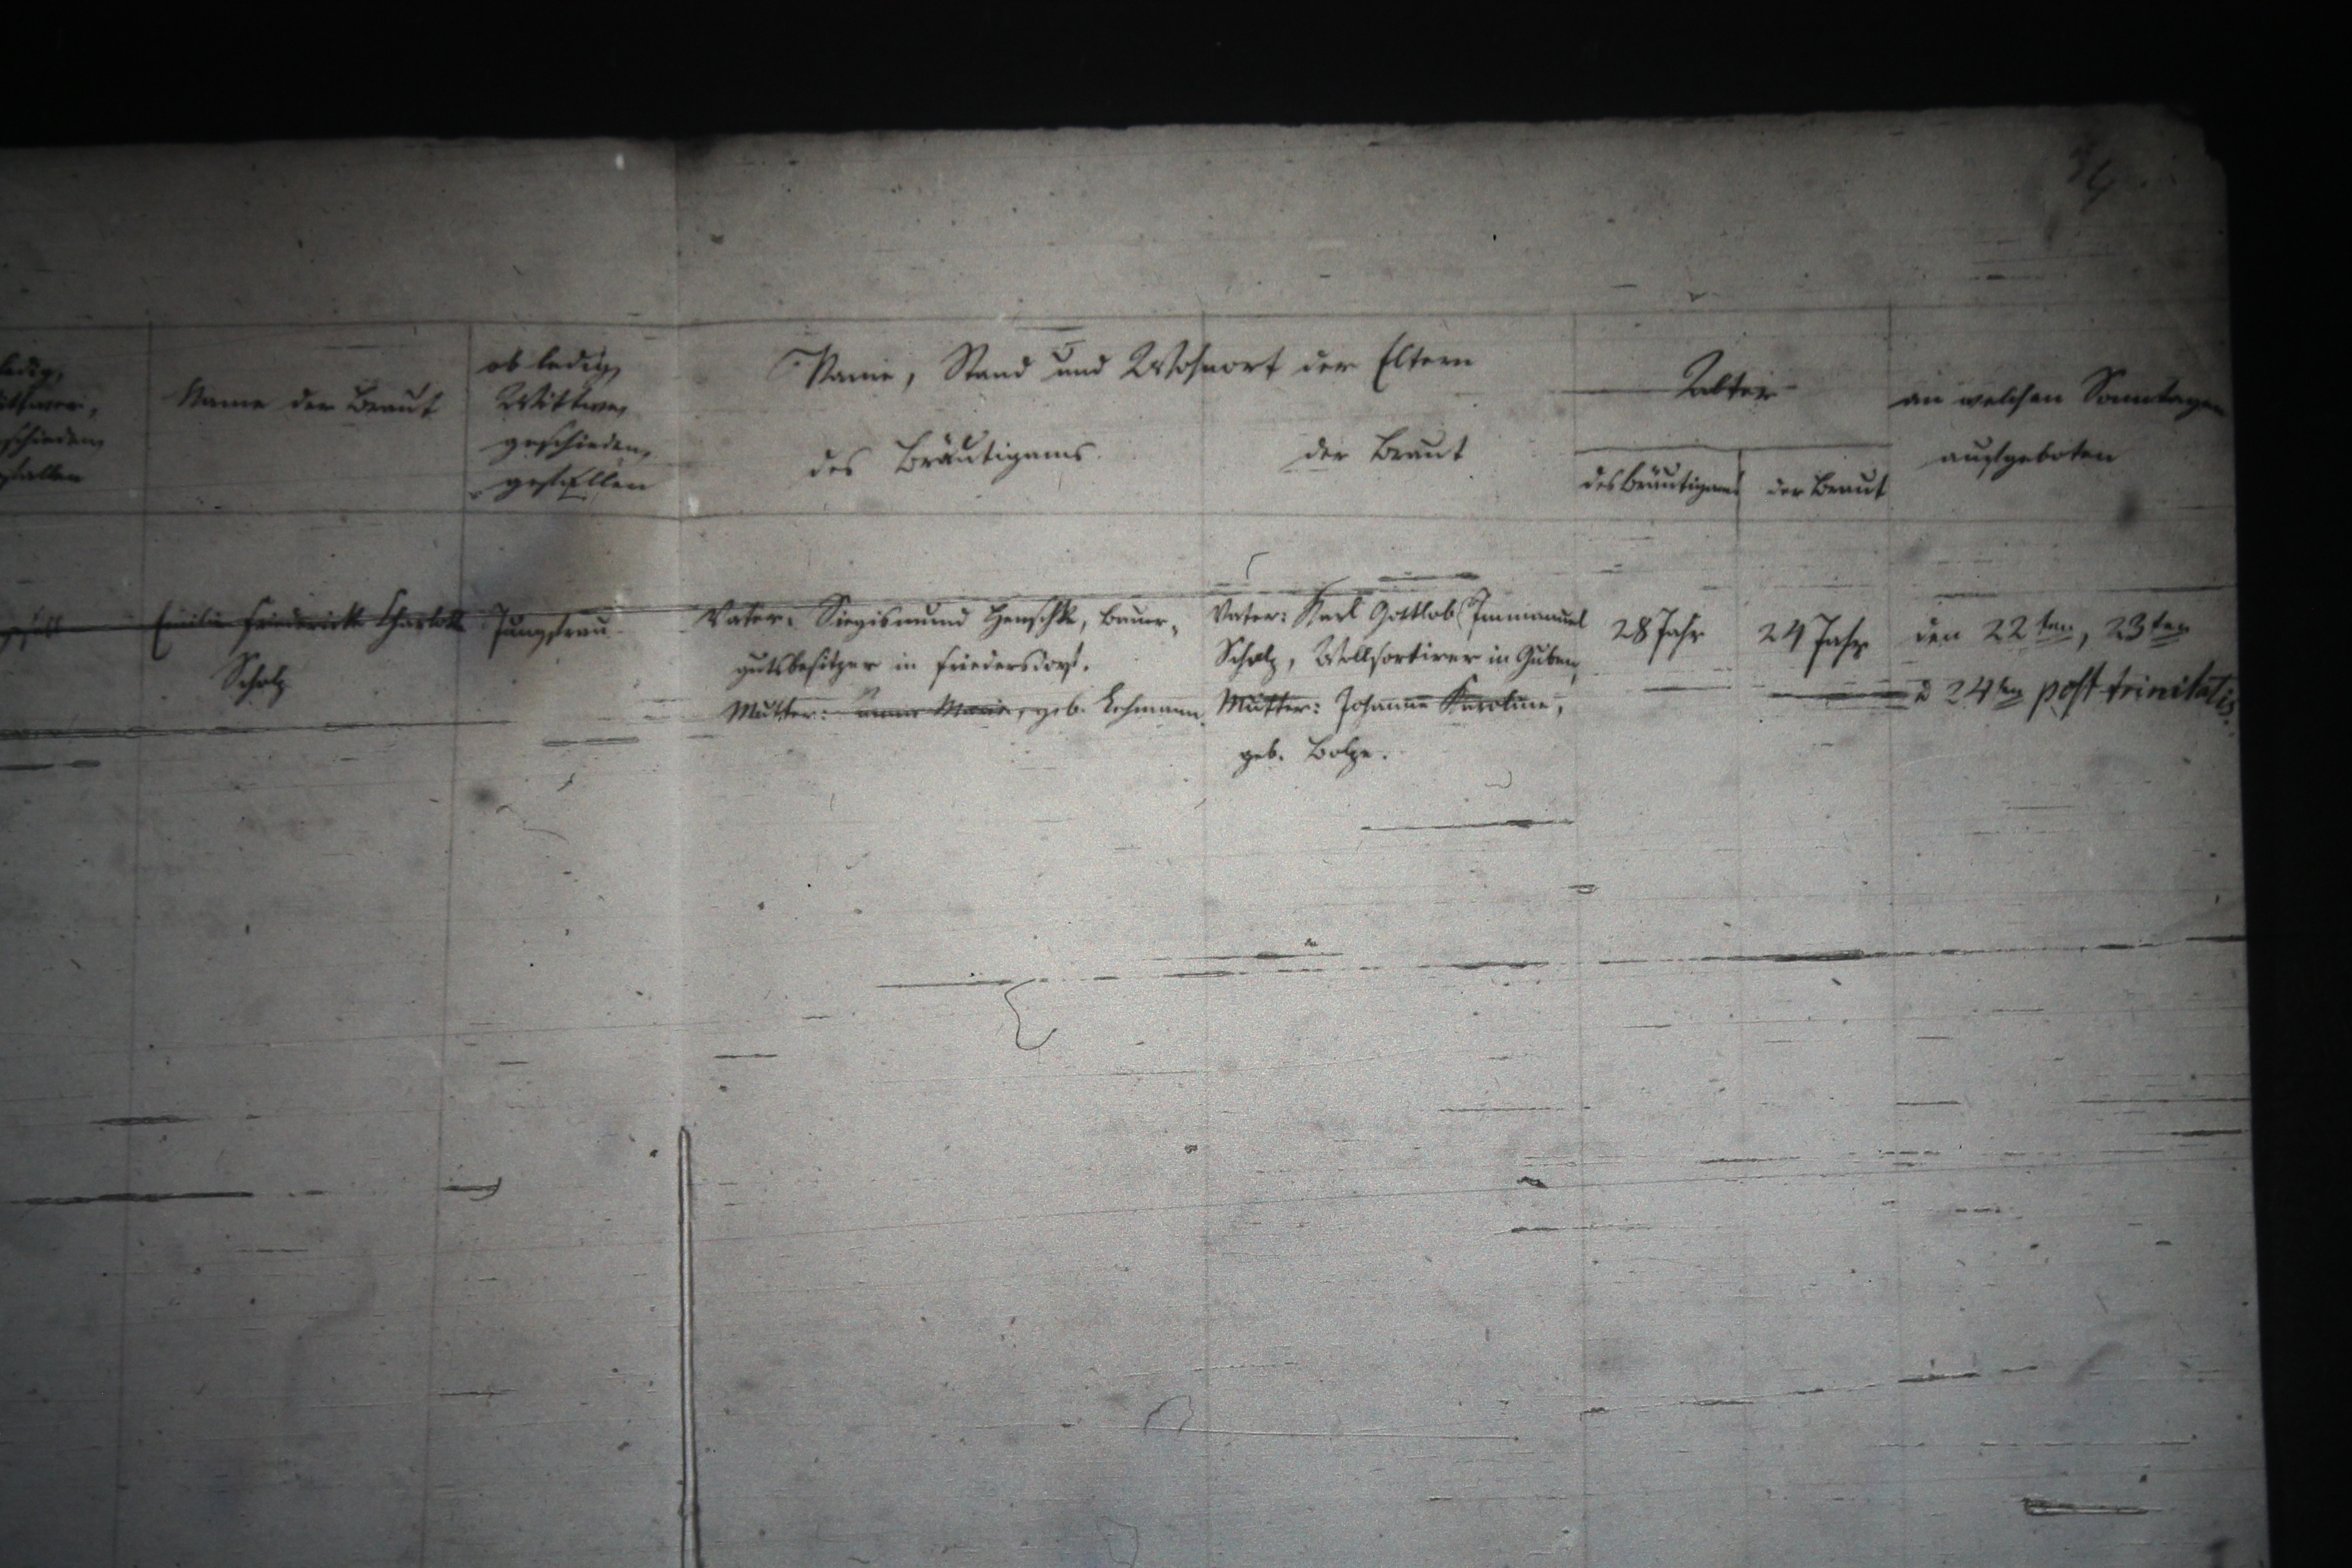 ledig,
Wittwer,
geschieden,
gefallen
Name der Braut
ob ledig,
Wittwe,
geschieden,
gefallen
Name, Stand und Wohnort der Eltern
des Bräutigams.
der Braut
Alter
des Bräutigams
der Braut
an welchen Sonntagen
aufgeboten
Emilie Friederike Charlotte
Scholz
Jungfrau
Vater: Siegismund Henschke, Bauer-
gutsbesitzer in Friedersdorf.
Mutter: Anna Maria, geb. Lehmann.
Vater: Karl Gottlob Immanuel
Scholz, Wollsortirer in Guben,
Mutter: Johanne Karoline,
geb. Bolze.
28 Jahr
24 Jahr
den 22ten, 23ten
& 24ten post trinitatis.